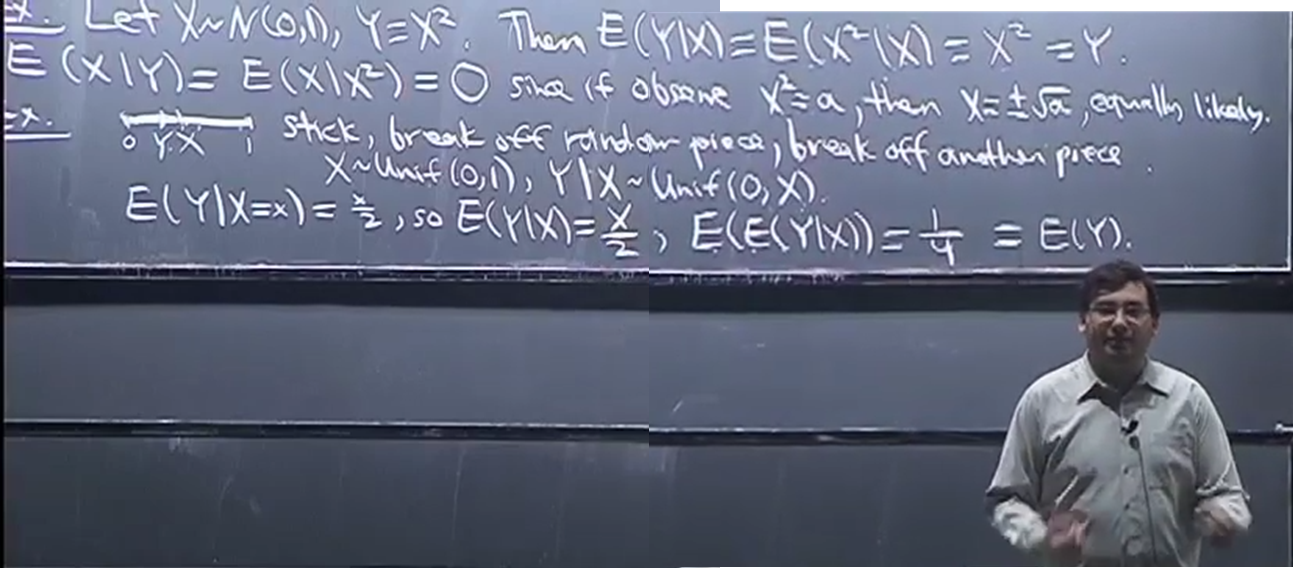 Ex. Let X~N(0,1), Y=X². Then E(Y|X)=E(X²|X)=X²=Y.
E(X|Y)=E(X|X²)=0 since if observe X²=a, then X=±√a, equally likely.
Ex. 0 Y X 1 stick, break off random piece, break off another piece.
X~Unif(0,1), Y|X~Unif(0,X).
E(Y|X=x)=x/2, so E(Y|X)=X/2, E(E(Y|X))=1/4=E(Y).